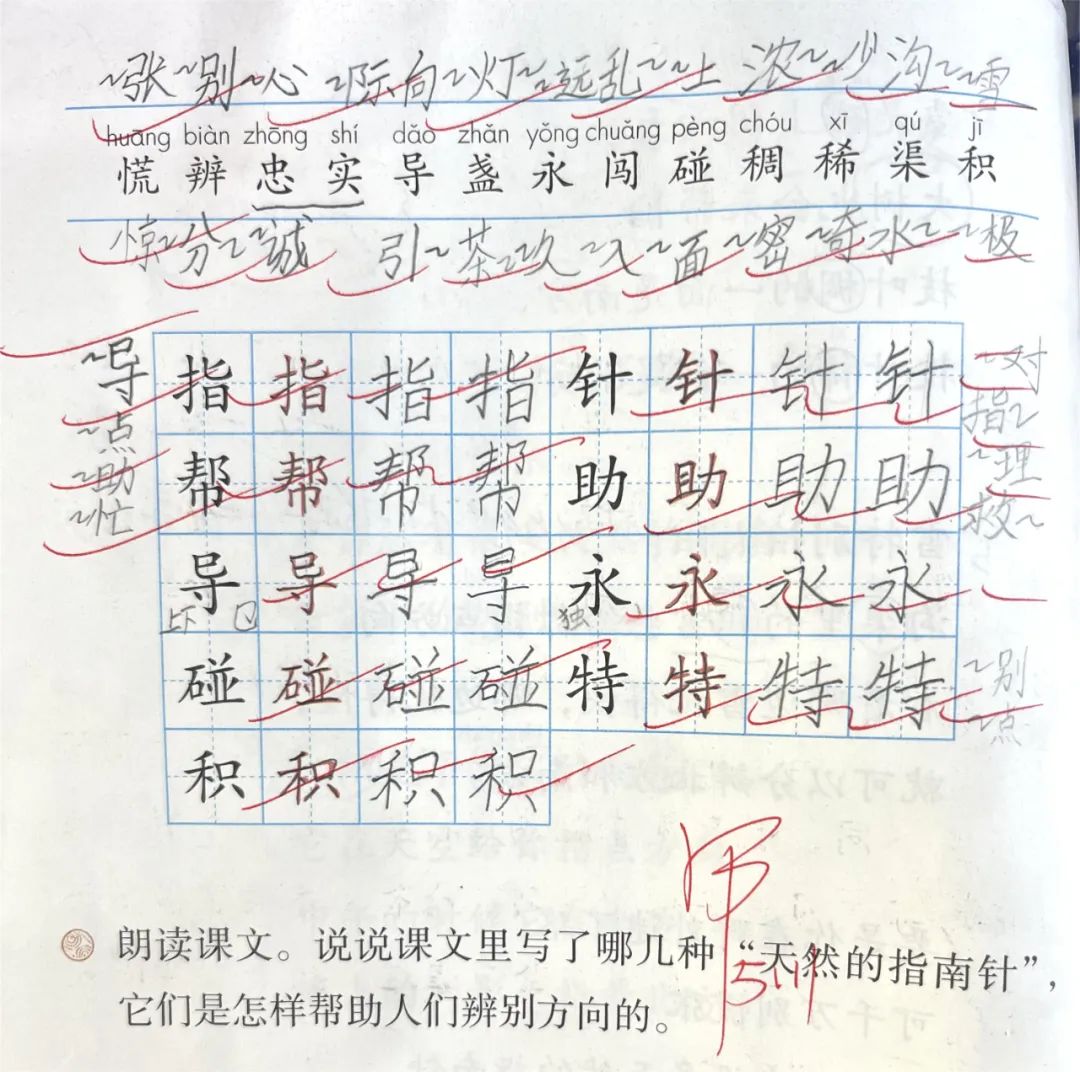 ~张 ~别 ~心 ~际 ~向 ~灯 ~远 ~乱 ~上 浓~ ~少 沟~ ~雪
huāng biàn zhōng shí dǎo zhǎn yǒng chuǎng pèng chóu xī qú jī
慌 辨 忠 实 导 盏 永 闯 碰 稠 稀 渠 积
惊~ 分~ ~诚 引~ 茶~ ~久 ~入 ~面 ~密 ~奇 水~ ~极
~导 指 指 指 指 针 针 针 针 ~对
~点 指~
~助 帮 帮 帮 帮 助 助 助 助 ~理
~忙 救~
导 导 导 导 永 永 永 永
碰 碰 碰 碰 特 特 特 特 ~别
独~ ~点
积 积 积 积
5.11
朗读课文。说说课文里写了哪几种“天然的指南针”，
它们是怎样帮助人们辨别方向的。